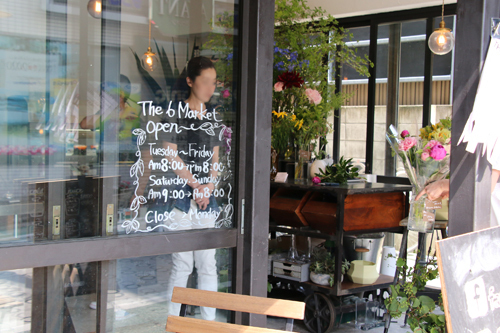 The 6 Market
Open
Tuesday ~ Friday
Am 8:00 → Pm 8:00
Saturday. Sunday
Am 9:00 → Pm 8:00
Close → Monday